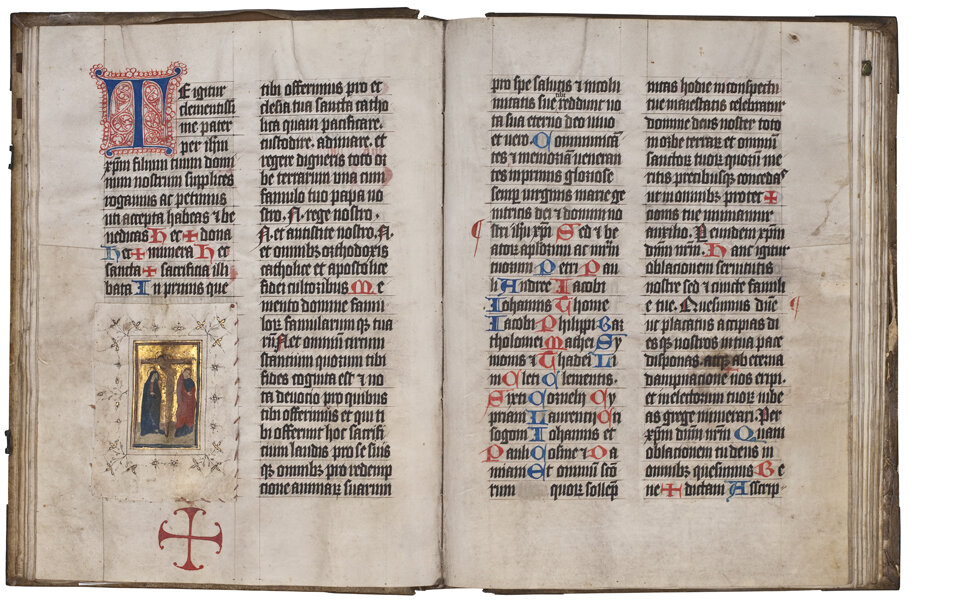 TE igitur
clementissi
me pater
per ihm
xpm filium tuum domi
num nostrum supplices
rogamus ac petimus
uti accepta habeas ⁊ be
nedicas Hec + dona
Hec + munera Hec
sancta + sacrificia illi
bata In primis que
tibi offerimus pro ec
clesia tua sancta catho
lica quam pacificare.
custodire. adunare. et
regere digneris toto or
be terrarum una cum
famulo tuo papa no
stro .N. rege nostro .
N. et antistite nostro .N.
et omnibz orthodoxis
catholice et apostolice
fidei cultoribus Me
mento domine famu
loꝝ famularum qz tua
rū N. et omniū circum
stantium quorum tibi
fides cognita est ⁊ no
ta devocio pro quibus
tibi offerimus et qui ti
bi offerunt hoc sacrifi
cium laudis pro se suis
qz omnibz pro redemp
cione animaꝝ suarum
pro spe salutis ⁊ incolu
mitatis sue tibi reddunt uo
ta sua eterno deo uiuo
et uero. Communicā
tes ⁊ memoriam veneran
tes inprimis gloriose
semꝑ uirginis marie ge
nitricis dei ⁊ domini no
stri ihu xpi Sed ⁊ be
atoꝝ aploꝝum ac mr̄ti
rum Petri Pau
li Andree Iacobi
Iohannis Thome
Iacobi Philippi Bar
tholomei Mathei Sy
monis ⁊ Thadei Li
ni Cleti Clementis.
Sixti Cornelij Cy
priani Laurencij Cri
sogoni Iohannis et
Pauli Cosme ⁊ Da
miani Et omniū scō
rum quoꝝ sollēp
nitas hodie in conspectu
tue maiestatis celebratur
domine deus noster toto
in orbe terraꝝ et omniū
sanctoꝝ tuoꝝ quoꝝ me
ritis precibusqz concedas
ut in omnibz protec +
tionis tue muniamur
auxilio. Per eundem xpm
dn̄m nr̄m. Hanc igitur
oblacionem seruitutis
nostre sed ⁊ cuncte famili
e tue. Quesumus dn̄e
ut placatus accipias di
es qz nostros in tua pace
disponas. atqz ab eterna
dampnacione nos eripi.
et in electorum tuoꝝ iube
as grege numerari. Per
xpm dn̄m nr̄m Quam
oblacionem tu deus in
omnibz quesumus Be
ne + dictam Asscrip